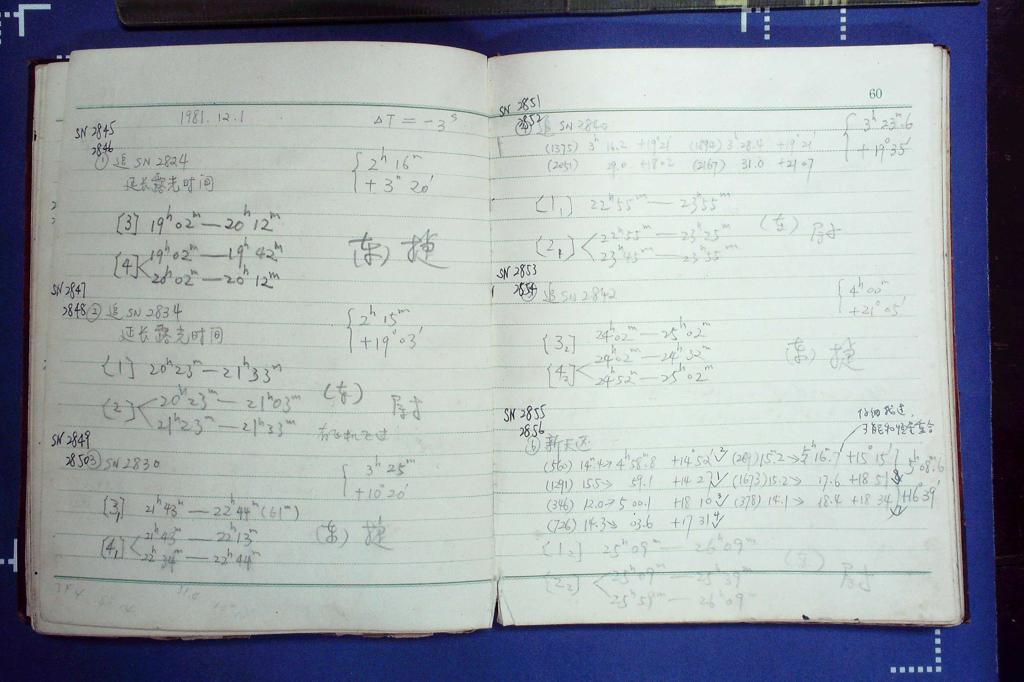 1981.12.1 ΔT = -3ˢ
SN 2845
2846
① 追 SN 2824
延长露光时间
{ 2ʰ 16ᵐ
+ 3° 20′
[3] 19ʰ02ᵐ — 20ʰ12ᵐ
[4] < 19ʰ02ᵐ — 19ʰ42ᵐ
20ʰ02ᵐ — 20ʰ12ᵐ
(东) 捷
SN 2847
2848 ② 追 SN 2834
延长露光时间
{ 2ʰ 15ᵐ
+19° 03′
[1] 20ʰ23ᵐ — 21ʰ33ᵐ
[2] < 20ʰ23ᵐ — 21ʰ03ᵐ
21ʰ23ᵐ — 21ʰ33ᵐ
(东)
SN 2849
2850 ③ SN 2830
{ 3ʰ 25ᵐ
+10° 20′
[3₁] 21ʰ43ᵐ — 22ʰ44ᵐ (61ᵐ)
[4₁] < 21ʰ43ᵐ — 22ʰ13ᵐ
22ʰ34ᵐ — 22ʰ44ᵐ
(东) 捷
60
SN 2851
2852
④ 追 SN 2840
{ 3ʰ 23ᵐ.6
+19° 35′
(1375) 3ʰ 16.2 +19°21 (1894) 3ʰ 28.4 +19 21
(2051) 29.0 +18 02 (2167) 31.0 +21 07
[1₁] 22ʰ55ᵐ — 23ʰ55ᵐ
[2₁] < 22ʰ55ᵐ — 23ʰ25ᵐ
23ʰ45ᵐ — 23ʰ55ᵐ
(东)
SN 2853
2854
⑤ 追 SN 2842
{ 4ʰ 00ᵐ
+21° 05′
[3₂] 24ʰ02ᵐ — 25ʰ02ᵐ
[4₂] < 24ʰ02ᵐ — 24ʰ32ᵐ
24ʰ52ᵐ — 25ʰ02ᵐ
(东) 捷
SN 2855
2856
⑥ 新天区
(560) 14.4→ 4ʰ58ᵐ.8 +14°52′ (209) 15.2→ 5ʰ 16.7 +15°15′
{ 5ʰ 08ᵐ.6
+16° 39′
(1291) 15.5→ 59.1 +14 21 (1673) 15.2→ 17.6 +18 51
(346) 12.0→ 5 00.1 +18 10 (378) 14.1→ 18.4 +18 34
(726) 14.3→ 03.6 +17 31
[1₂] 25ʰ09ᵐ — 26ʰ09ᵐ
[2₂] < 25ʰ09ᵐ — 25ʰ39ᵐ
25ʰ59ᵐ — 26ʰ09ᵐ
(东)